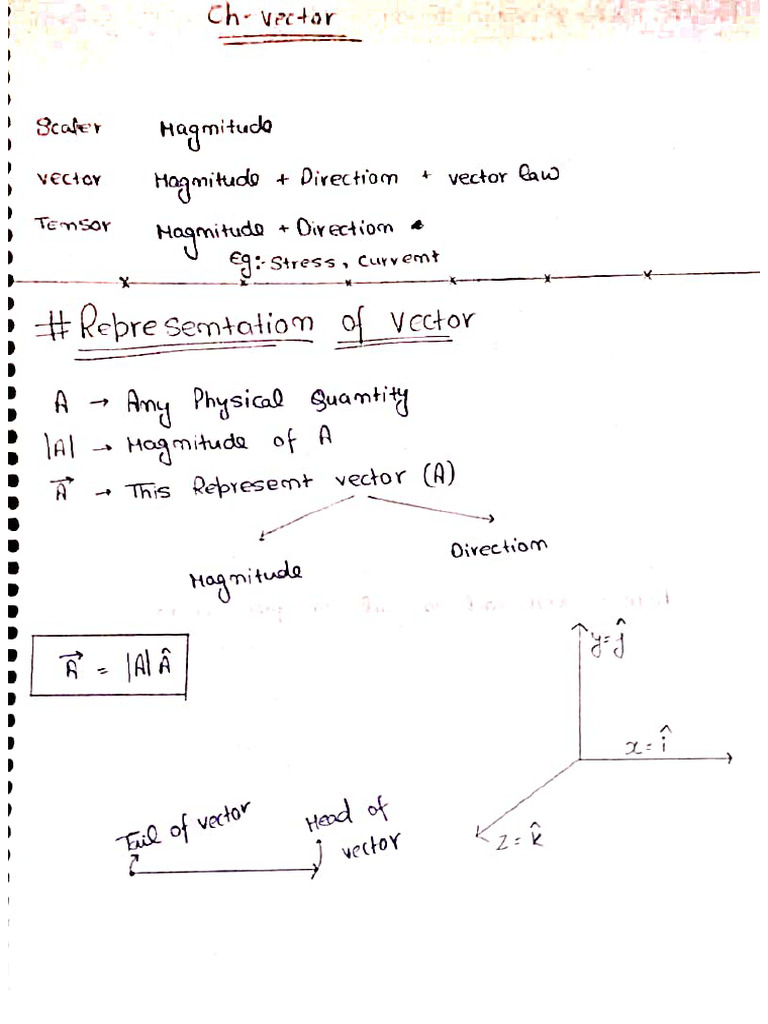 Ch-vector
Scaler Magnitude
vector Magnitude + Direction + vector law
Tensor Magnitude + Direction
Eg:- Stress, Current
# Representation of vector
A → Any Physical Quantity
|A| → Magnitude of A
A⃗ → This Represent vector (A)
Magnitude Direction
A⃗ = |A| Â
y=ĵ
x=î
z=k̂
Tail of vector
Head of
vector